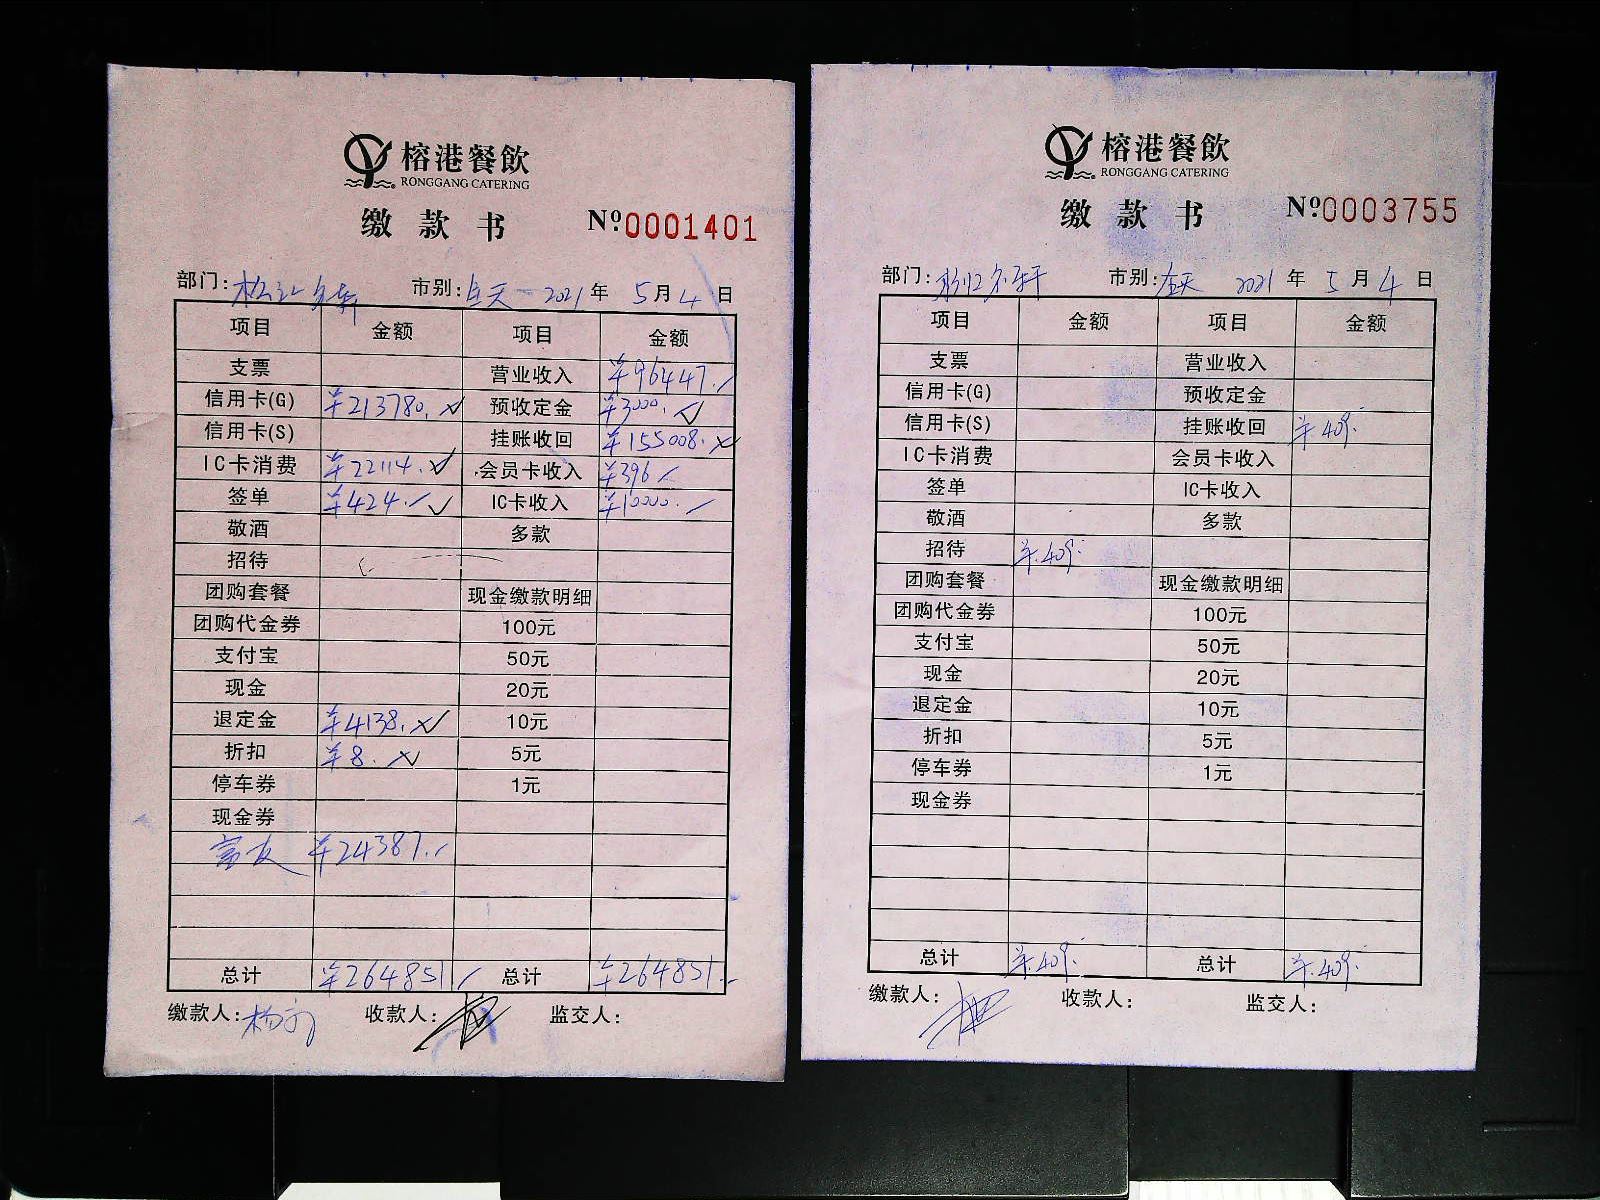 榕港餐飲
RONGGANG CATERING
缴款书 №:0001401
部门: 市别:全天 2021年5月4日
项目 金额 项目 金额
支票 营业收入 ¥96447.
信用卡(G) ¥213780. 预收定金 ¥3000.
信用卡(S) 挂账收回 ¥155008.
IC卡消费 ¥22114. 会员卡收入 ¥396
签单 ¥424. IC卡收入 ¥10000.
敬酒 多款
招待
团购套餐 现金缴款明细
团购代金券 100元
支付宝 50元
现金 20元
退定金 ¥4138. 10元
折扣 ¥8. 5元
停车券 1元
现金券
富友 ¥24387.
总计 ¥264851 总计 ¥264851.
缴款人: 收款人: 监交人:
榕港餐飲
RONGGANG CATERING
缴款书 №:0003755
部门: 市别:全天 2021年5月4日
项目 金额 项目 金额
支票 营业收入
信用卡(G) 预收定金
信用卡(S) 挂账收回 ¥409.
IC卡消费 会员卡收入
签单 IC卡收入
敬酒 多款
招待 ¥409.
团购套餐 现金缴款明细
团购代金券 100元
支付宝 50元
现金 20元
退定金 10元
折扣 5元
停车券 1元
现金券
总计 ¥409. 总计 ¥409.
缴款人: 收款人: 监交人: